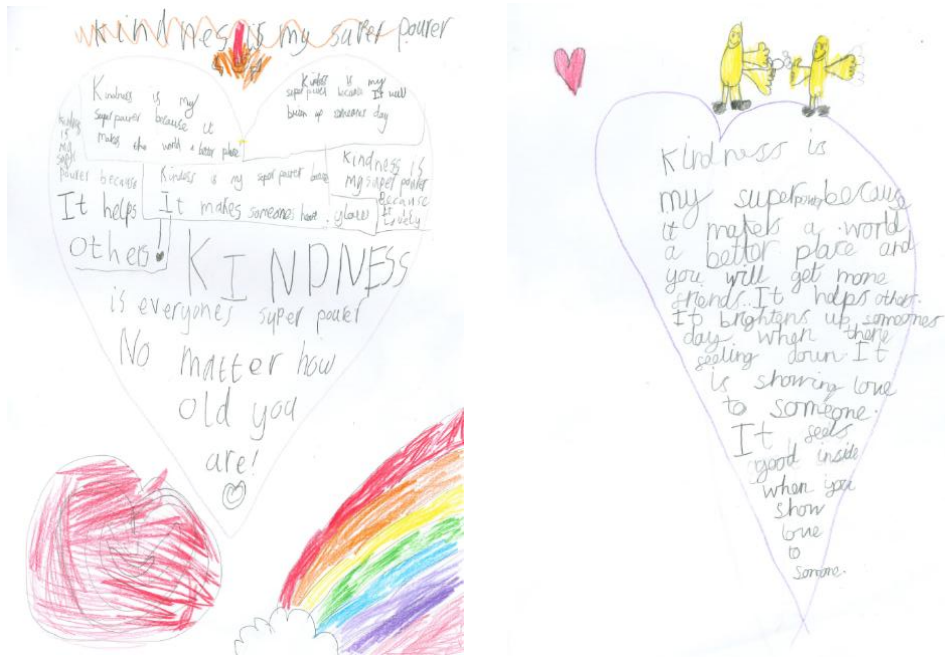 kindness is my super pourer
Kindness is my
super pourer because it
makes the world a better place
Kindess is my
super pourer because It will
day
kindess
is
my
super
pourer because
It helps
others!
Kindness is my super pourer
It makes someones heart glow
kindness is
my super pourer
because
It
KINDNESS
is everyones super pourer
No matter how
old you
are!
Kindness is
my superpower because
it makes a world
a better place and
you will get more
friends. It helps others.
It brightens up someones
day when there
feeling down. It
is showing love
to someone.
It feels
good inside
when you
show
love
to
somone.